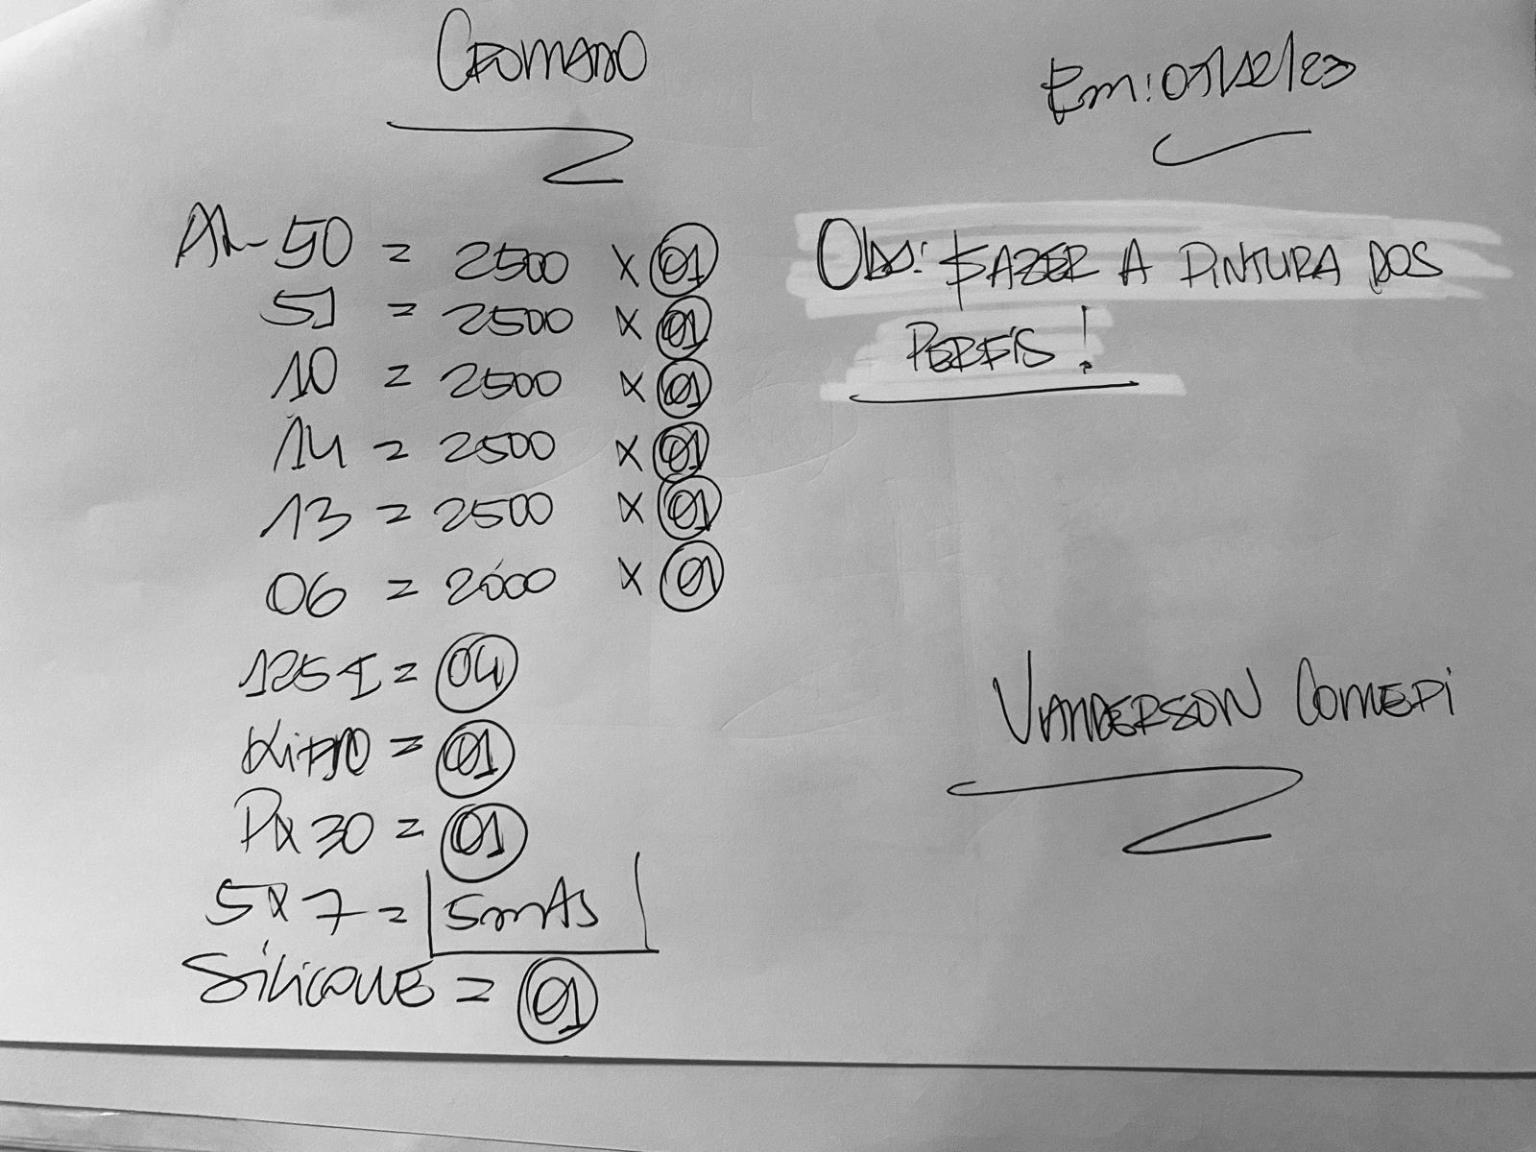 CROMADO
Em: 07/12/23
AL-50 = 2500 x 01
51 = 2500 x 01
10 = 2500 x 01
14 = 2500 x 01
13 = 2500 x 01
06 = 2000 x 01
125 I = 04
= 01
30 = 01
5x7 = 5mts
SILICONE = 01
Obs: FAZER A PINTURA DOS
PERFIS!
VANDERSON COMEPI